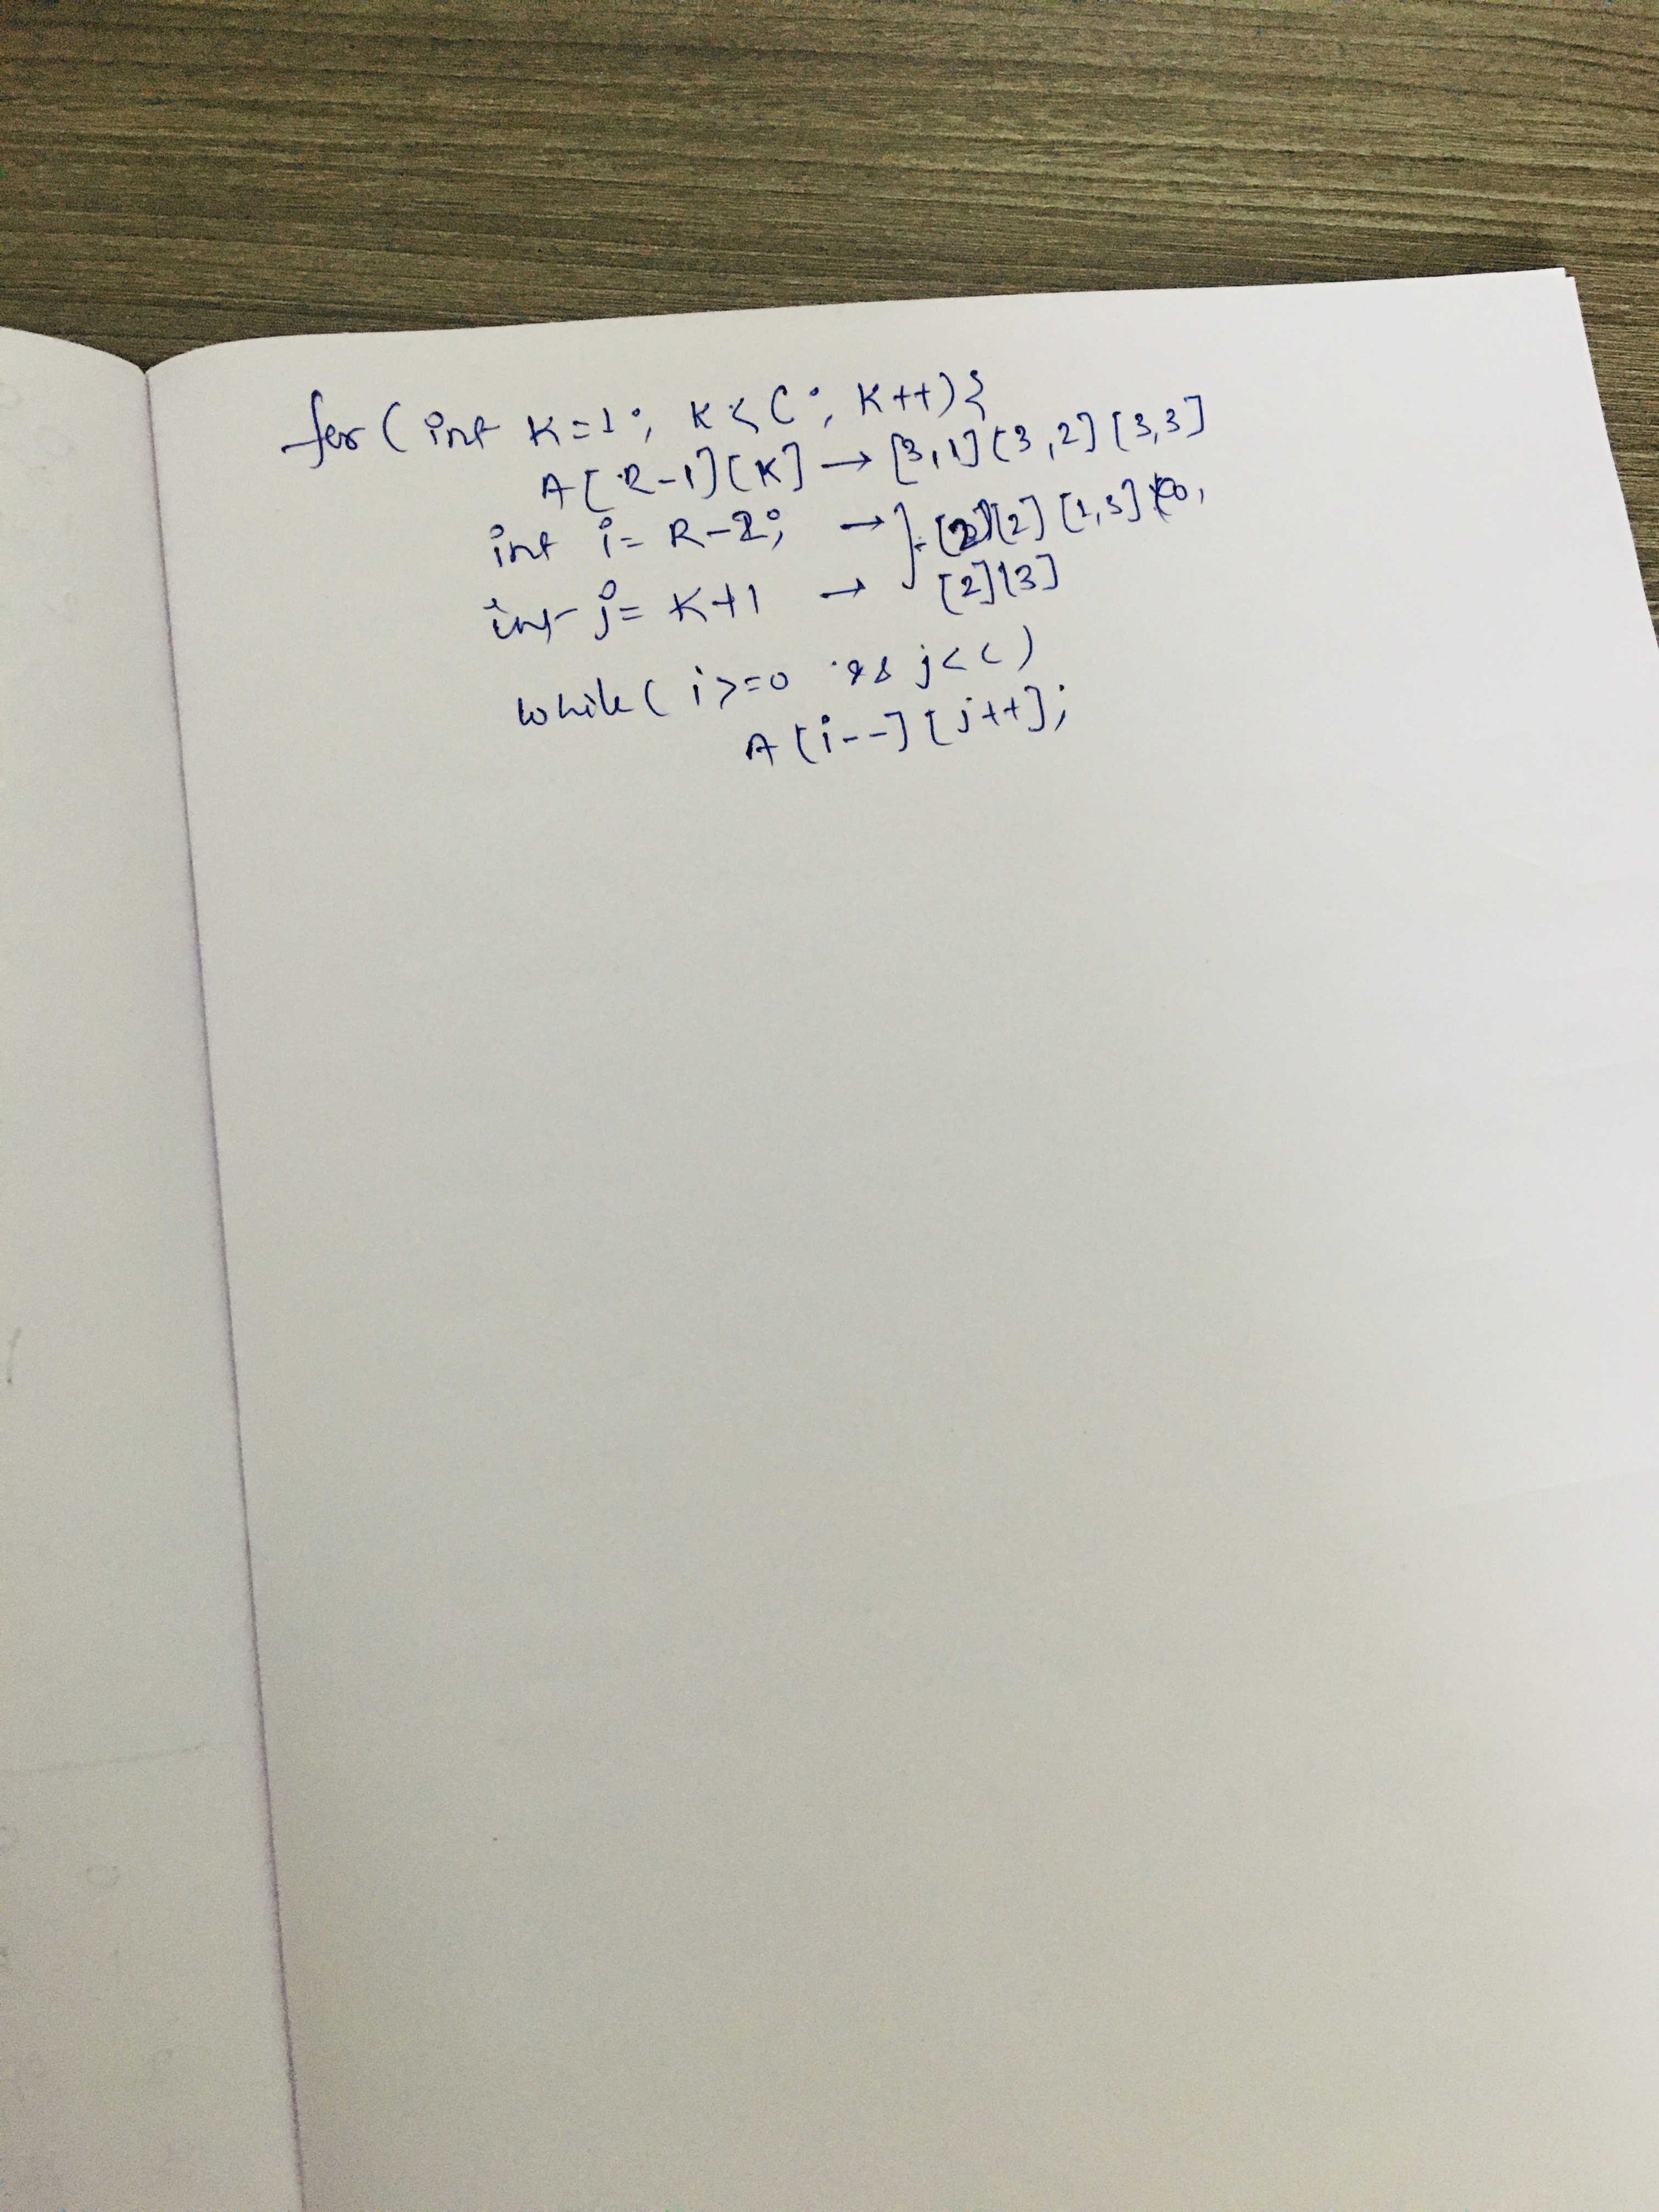 for( int K=1; K<C; K++){
A[R-1][K] → [3,1][3,2][3,3]
int i= R-2; → [2][2] [1,3]
int j= K+1 → [2][3]
while( i>=0 && j<C)
A[i--][j++];